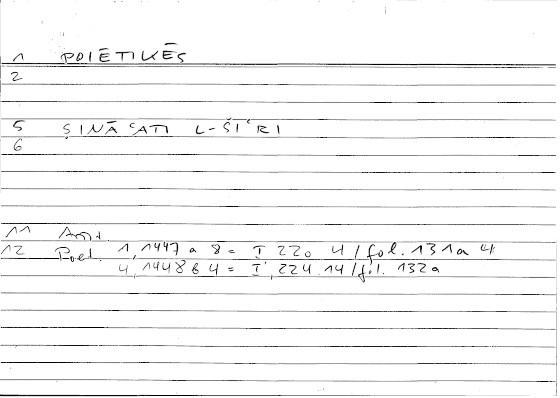 1 POIĒTIKĒS
2
5 ṢINĀʿATI L-ŠIʿRI
6
11 Arist.
12 Poet. 1, 1447 a 8 = I 220 4 / fol. 131a 4
4, 1448 b 4 = I, 224.14 / fol. 132a